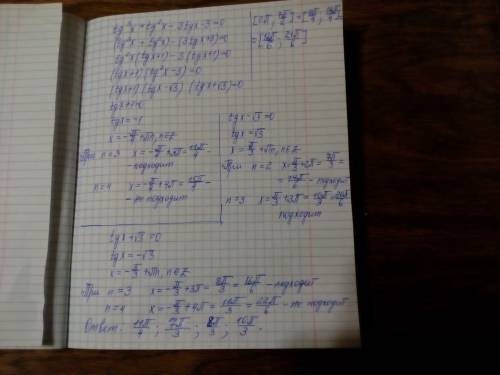 tg³x + tg²x - 3tgx - 3 = 0
(tg³x + tg²x) - (3tgx + 3) = 0
tg²x(tgx+1) - 3(tgx+1) = 0
(tgx+1)(tg²x - 3) = 0
(tgx+1)(tgx-√3)(tgx+√3) = 0
tgx+1=0
tgx = -1
x = -π/4 + πn, n∈Z
При n=3 x = -π/4 + 3π = 11π/4 -
- подходит
n=4 x = -π/4 + 4π = 15π/4 -
- не подходит
tgx - √3 = 0
tgx = √3
x = π/3 + πn, n∈Z
При n=2 x = π/3 + 2π = 7π/3 =
= 14π/6 - подходит
n=3 x = π/3 + 3π = 10π/3 = 20π/6
подходит
tgx + √3 = 0
tgx = -√3
x = -π/3 + πn, n∈Z
При n=3 x = -π/3 + 3π = 8π/3 = 16π/6 - подходит
n=4 x = -π/3 + 4π = 11π/3 = 22π/6 - не подходит
Ответ: 11π/4; 7π/3; 8π/3; 10π/3.